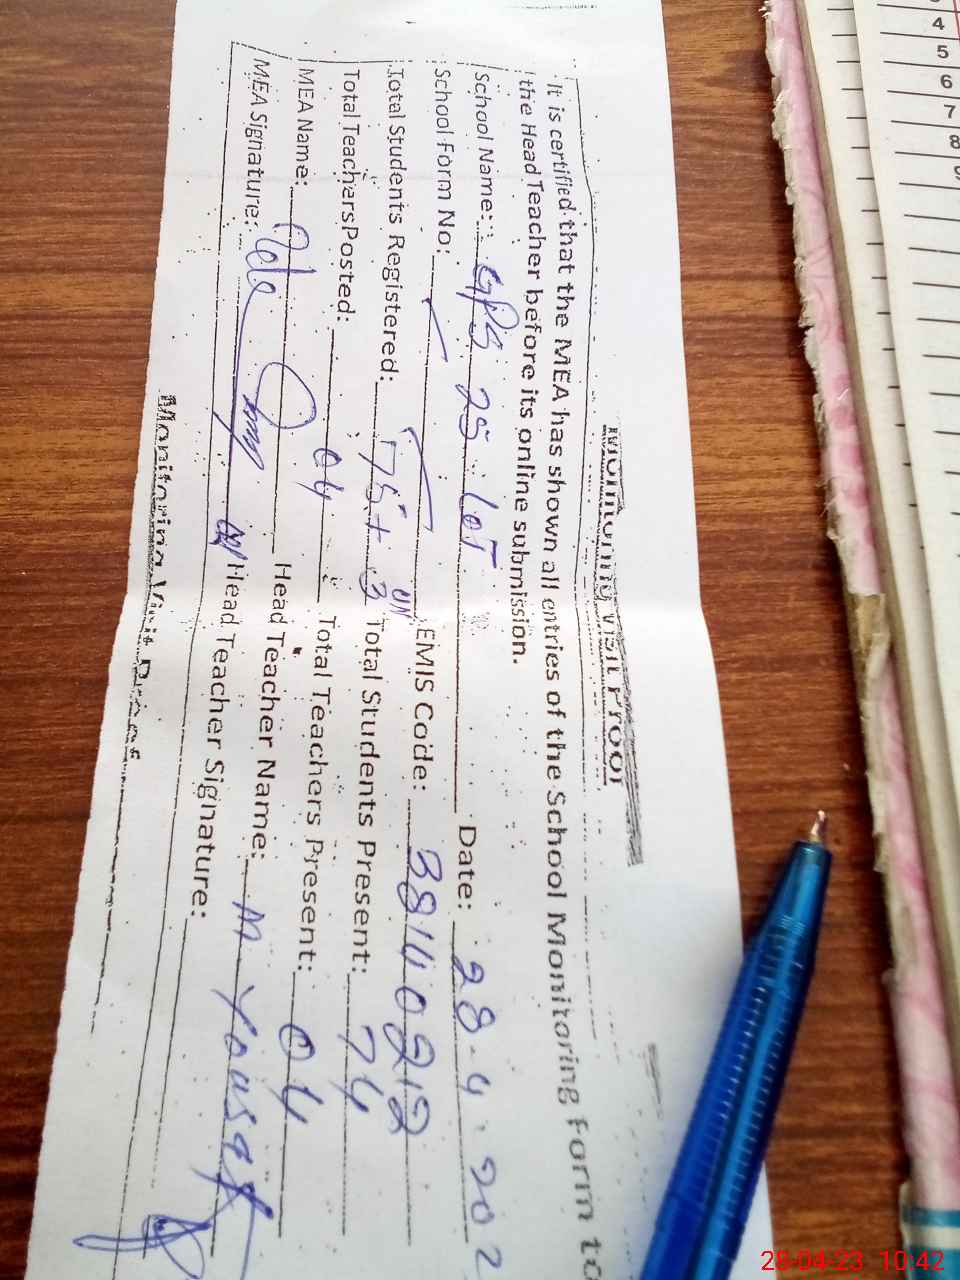 Monitoring Visit Proof
It is certified that the MEA has shown all entries of the School Monitoring Form to
the Head Teacher before its online submission.
School Name: GPS 25 Lot Date: 28-4-202
School Form No: EMIS Code: 38410212
Total Students Registered: 75+3 Total Students Present: 74
Total Teachers Posted: 04 Total Teachers Present: 04
MEA Name: Head Teacher Name: M Yousaf
MEA Signature: Head Teacher Signature:
Monitoring Visit Proof
4
5
6
7
8
28-04-23 10:42